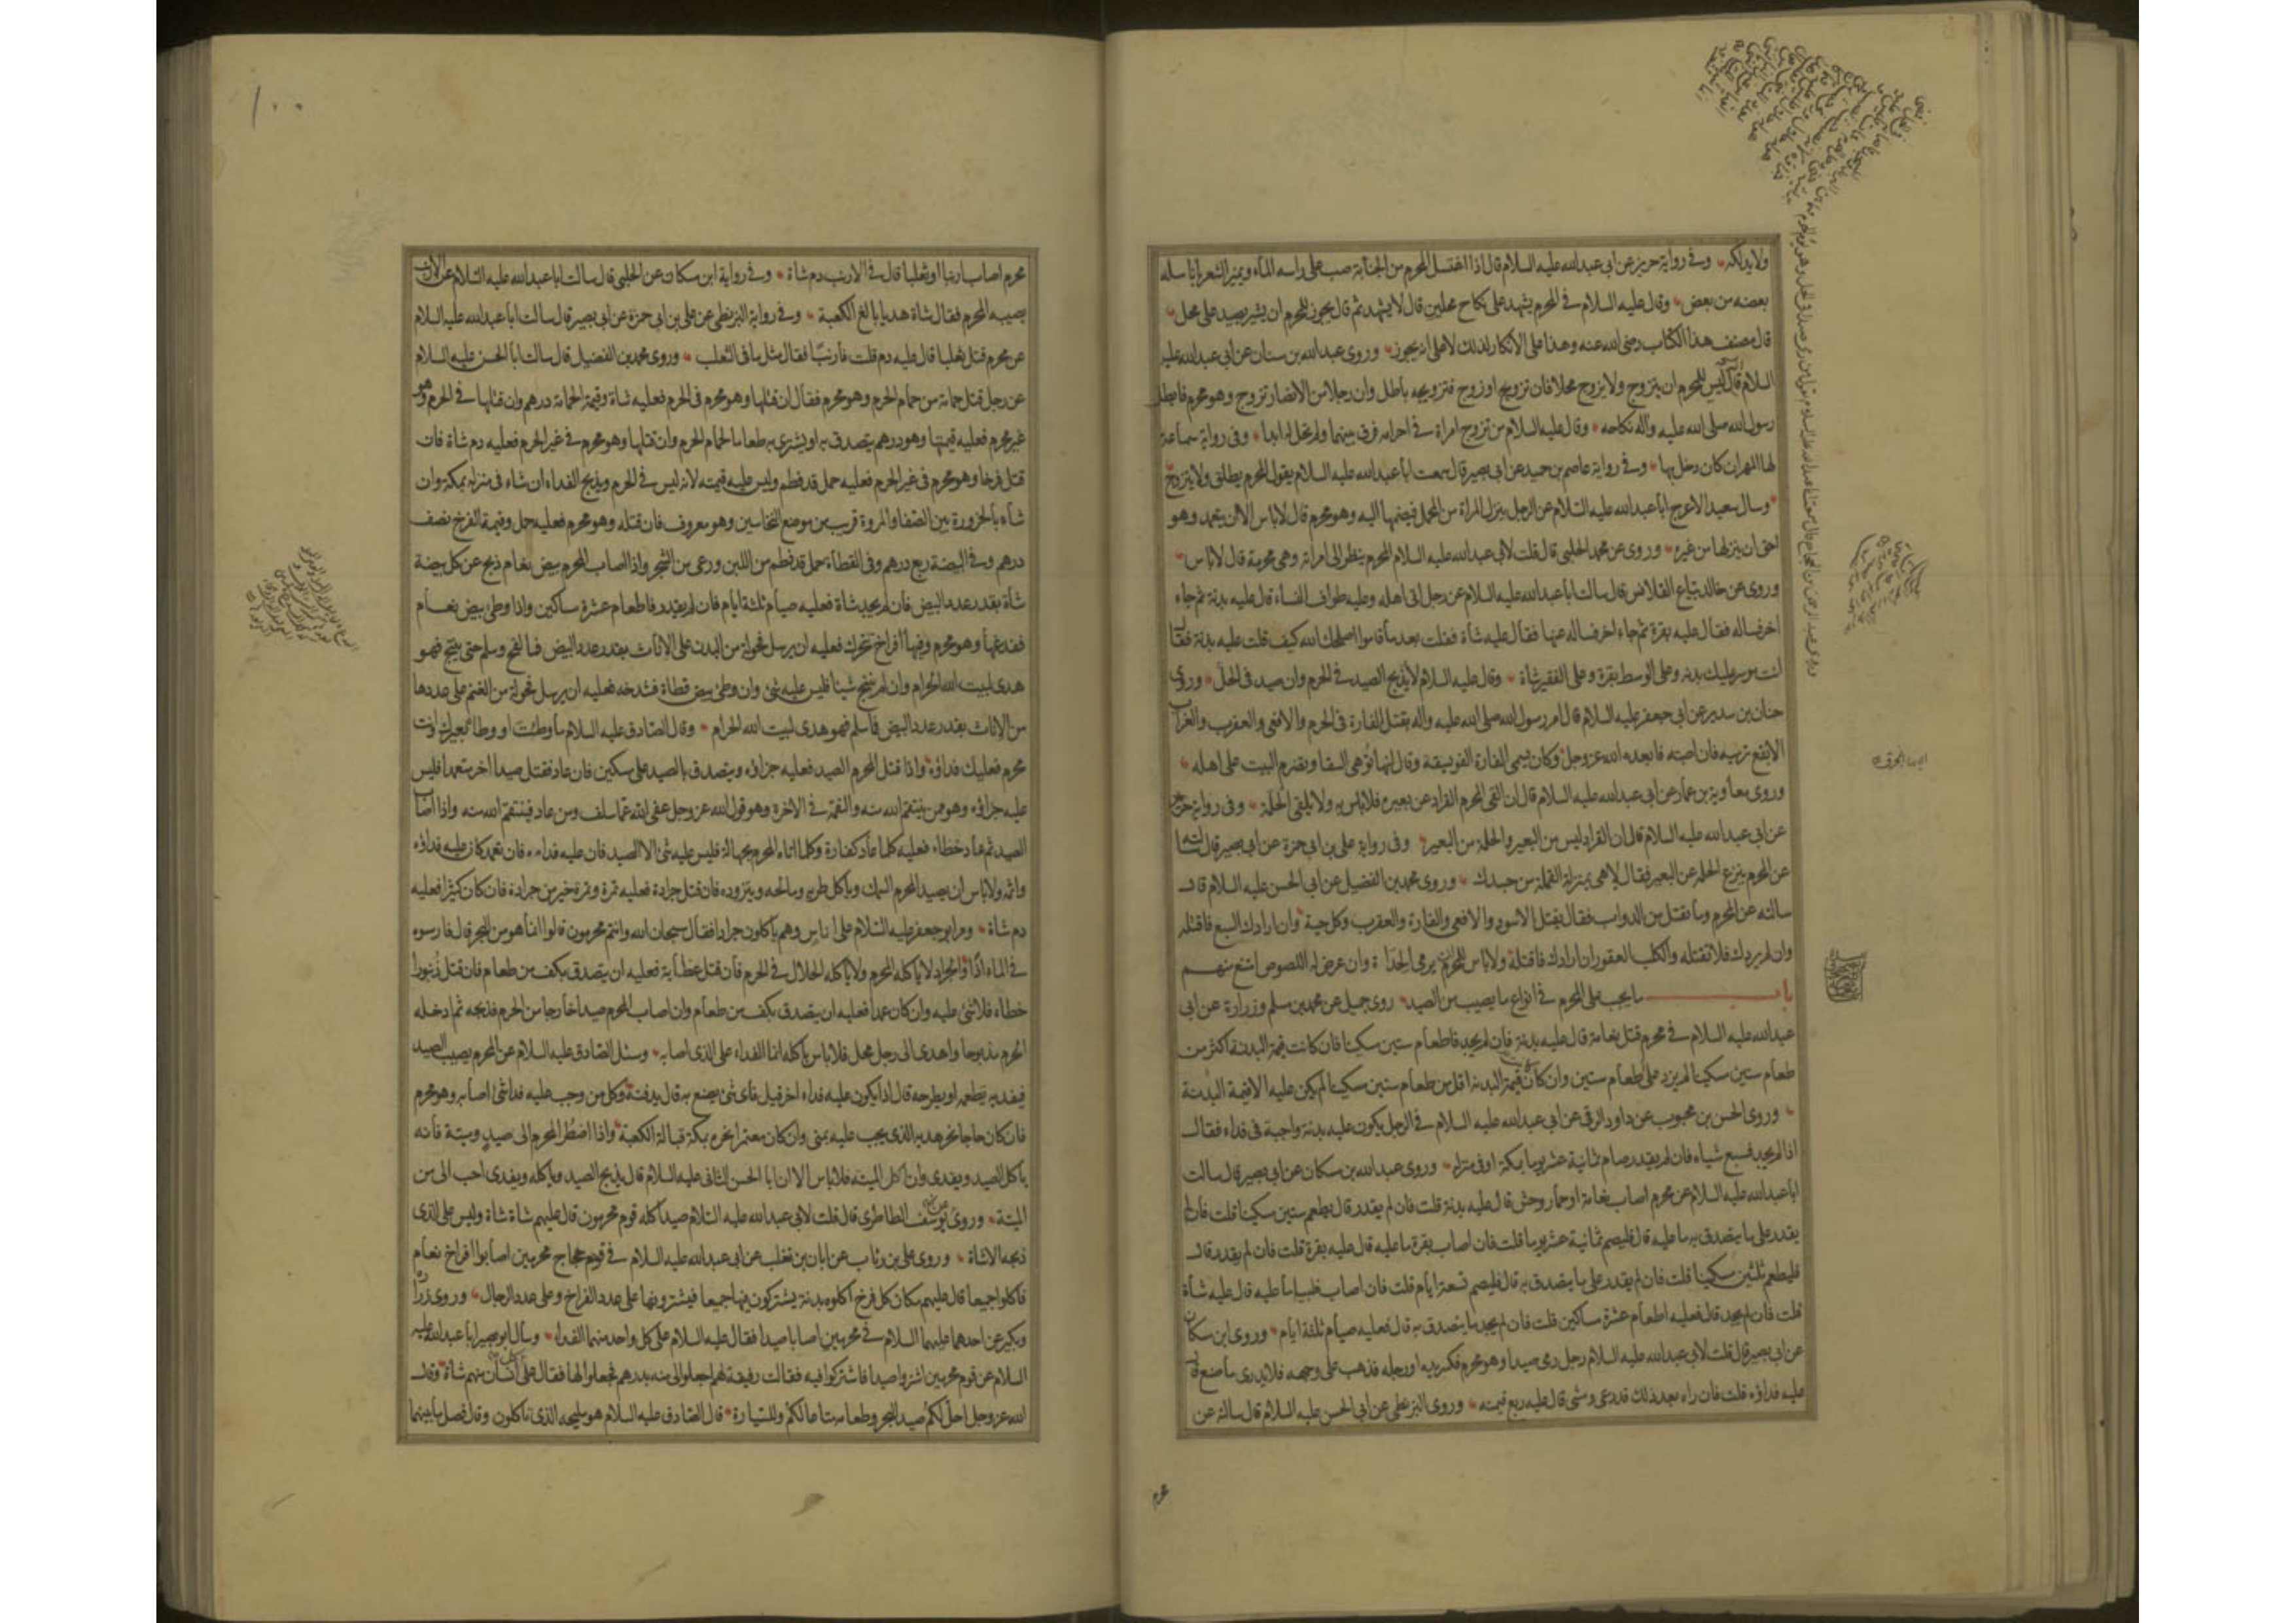 ولايدلكه وفي رواية حريز عن ابي عبدالله عليه السلام قال اذا اغتسل المحرم من الجنابة صب على راسه الماء ويميز الشعر بانامله
بعضه من بعض وقال عليه السلام في المحرم يشهد على نكاح محلين قال لا يشهد ثم قال يجوز للمحرم ان يشير بصيد على محل
قال مصنف هذا الكتاب رضي الله عنه وهذا على الانكار لذلك لا على انه يجوز وروى عبدالله بن سنان عن ابي عبدالله عليه
السلام قال ليس للمحرم ان يتزوج ولا يزوج محلا فان تزوج او زوج فتزويجه باطل وان رجلا من الانصار تزوج وهو محرم فابطل
رسول الله صلى الله عليه وآله نكاحه وقال عليه السلام من تزوج امراة في احرامه فرق بينهما ولم تحل له ابدا وفي رواية سماعة
لها المهر ان كان دخل بها وفي رواية عاصم بن حميد عن ابي بصير قال سمعت ابا عبدالله عليه السلام يقول المحرم يطلق ولا يتزوج
وسال سعيد الاعرج ابا عبدالله عليه السلام عن الرجل ينزل المراة من المحمل فيضمها اليه وهو محرم قال لا باس الا ان يتعمد وهو
احق ان ينزلها من غيره وروى عن محمد الحلبي قال قلت لابي عبدالله عليه السلام المحرم ينظر الى امراته وهي محرمة قال لا باس
وروى عن خالد بياع القلانس قال سالت ابا عبدالله عليه السلام عن رجل اتى اهله وعليه طواف النساء قال عليه بدنة ثم جاء
اخر فساله فقال عليه بقرة ثم جاء اخر فساله عنها فقال عليه شاة فقلت بعد ما قاموا اصلحك الله كيف قلت عليه بدنة فقال
انت موسر عليك بدنه وعلى الوسط بقرة وعلى الفقير شاة وقال عليه السلام لا يذبح الصيد في الحرم وان صيد في الحل وروى
حنان بن سدير عن ابي جعفر عليه السلام قال امر رسول الله صلى الله عليه وآله بقتل الفارة في الحرم والافعى والعقرب والغراب
الابقع ترميه فان اصبته فابعده الله عز وجل وكان يسمى الفارة الفويسقة وقال انها توهى السقا وتضرم البيت على اهله
وروى معاوية بن عمار عن ابي عبدالله عليه السلام قال ان القى المحرم القراد عن بعيره فلا باس به ولا يلقي الحلمة وفي رواية حريز
عن ابي عبدالله عليه السلام قال ان القراد ليس من البعير والحلمة من البعير وفي رواية علي بن ابي حمزة عن ابي بصير قال سالته
عن المحرم ينزع الحلمة عن البعير فقال لا هي بمنزلة القملة من جسدك وروى محمد بن الفضيل عن ابي الحسن عليه السلام قال
سالته عن المحرم وما يقتل من الدواب فقال يقتل الاسود والافعى والفارة والعقرب وكل حية وان ارادك السبع فاقتله
وان لم يردك فلا تقتله والكلب العقور ان ارادك فاقتله ولا باس للمحرم ان يرمى الحداة وان عرض له اللصوص امتنع منهم
باب ما يجب على المحرم في انواع ما يصيب من الصيد روى جميل عن محمد بن مسلم وزرارة عن ابي
عبدالله عليه السلام في محرم قتل نعامة قال عليه بدنة فان لم يجد فاطعام ستين مسكينا فان كانت قيمة البدنة اكثر من
طعام ستين مسكينا لم يزد على طعام ستين وان كان قيمة البدنة اقل من طعام ستين مسكينا لم يكن عليه الا قيمة البدنة
وروى الحسن بن محبوب عن داود الرقي عن ابي عبدالله عليه السلام في الرجل يكون عليه بدنة واجبة في فداء فقال
اذا لم يجد فسبع شياه فان لم يقدر صام ثمانية عشر يوما بمكة او في منزله وروى عبدالله بن مسكان عن ابي بصير قال سالت
ابا عبدالله عليه السلام عن محرم اصاب نعامة او حمار وحش قال عليه بدنة قلت فان لم يقدر قال يطعم ستين مسكينا قلت فان لم
يقدر على ما يتصدق به ما عليه قال فليصم ثمانية عشر يوما قلت فان اصاب بقرة ما عليه قال عليه بقرة قلت فان لم يقدر قال
فليطعم ثلثين مسكينا قلت فان لم يقدر على ما يتصدق به قال فليصم تسعة ايام قلت فان اصاب ظبيا ما عليه قال عليه شاة
قلت فان لم يجد قال فعليه اطعام عشرة مساكين قلت فان لم يجد ما يتصدق به قال فعليه صيام ثلثة ايام وروى ابن مسكان
عن ابي بصير قال قلت لابي عبدالله عليه السلام رجل رمى صيدا وهو محرم فكسر يده او رجله فذهب على وجهه فلا يدرى ما صنع قال
عليه فداؤه قلت فان راه بعد ذلك قد رعى ومشى قال عليه ربع قيمته وروى البزنطي عن ابي الحسن عليه السلام قال سالته عن
١٠٠
محرم اصاب ارنبا او ثعلبا قال في الارنب دم شاة وفي رواية ابن مسكان عن الحلبي قال سالت ابا عبدالله عليه السلام عن الارنب
يصيبه المحرم فقال شاة هديا بالغ الكعبة وفي رواية البزنطي عن علي بن ابي حمزة عن ابي بصير قال سالت ابا عبدالله عليه السلام
عن محرم قتل ثعلبا قال عليه دم قلت فارنبا فقال مثل ما في الثعلب وروى محمد بن الفضيل قال سالت ابا الحسن عليه السلام
عن رجل قتل حمامة من حمام الحرم وهو محرم فقال ان قتلها وهو محرم في الحرم فعليه شاة وقيمة الحمامة درهم وان قتلها في الحرم وهو
غير محرم فعليه قيمتها وهو درهم يتصدق به او يشترى به طعاما لحمام الحرم وان قتلها وهو محرم في غير الحرم فعليه دم شاة فان
قتل فرخا وهو محرم في غير الحرم فعليه حمل قد فطم وليس عليه قيمته لانه ليس في الحرم ويذبح الفداء ان شاء في منزله بمكة وان
شاء بالحزورة بين الصفا والمروة قريب من موضع النخاسين وهو معروف فان قتله وهو محرم فعليه حمل وقيمة الفرخ نصف
درهم وفي البيضة ربع درهم وفي القطاة حمل قد فطم من اللبن ورعى من الشجر واذا اصاب المحرم بيض نعام ذبح عن كل بيضة
شاة بقدر عدد البيض فان لم يجد شاة فعليه صيام ثلثة ايام فان لم يقدر فاطعام عشرة مساكين واذا وطئ بيض نعام
ففدغها وهو محرم وفيها افراخ تتحرك فعليه ان يرسل فحولة من البدن على الاناث بقدر عدد البيض فما لقح وسلم حتى ينتج فهو
هدى لبيت الله الحرام وان لم ينتج شيئا فليس عليه شئ وان وطئ بيض قطاة فشدخه فعليه ان يرسل فحولة من الغنم على عددها
من الاناث بقدر عدد البيض فما سلم فهو هدى لبيت الله الحرام وقال الصادق عليه السلام ما وطئت او وطأ بعيرك وانت
محرم فعليك فداؤه واذا قتل المحرم الصيد فعليه جزاؤه ويتصدق بالصيد على مسكين فان عاد فقتل صيدا اخر متعمدا فليس
عليه جزاؤه وهو ممن ينتقم الله منه والنقمة في الاخرة وهو قول الله عز وجل عفى الله عما سلف ومن عاد فينتقم الله منه واذا اصاب
الصيد ثم عاد خطاء فعليه كلما عاد كفارة وكلما اتاه المحرم بجهالة فليس عليه شئ الا الصيد فان عليه فداءه فان تعمد كان عليه فداؤه
واثمه ولا باس ان يصيد المحرم السمك وياكل طريه ومالحه ويتزوده فان قتل جرادة فعليه تمرة وتمرة خير من جرادة فان كان كثيرا فعليه
دم شاة ومر ابو جعفر عليه السلام على اناس وهم ياكلون جرادا فقال سبحان الله وانتم محرمون قالوا انما هو من البحر قال فارمسوه
في الماء اذا والجراد لا ياكله المحرم ولا ياكله الحلال في الحرم فان قتل عظاية فعليه ان يتصدق بكف من طعام فان قتل زنبورا
خطاء فلا شئ عليه وان كان عمدا فعليه ان يتصدق بكف من طعام وان اصاب المحرم صيدا خارجا من الحرم فذبحه ثم ادخله
الحرم مذبوحا واهدى الى رجل محل فلا باس باكله انما الفداء على الذي اصابه وسئل الصادق عليه السلام عن المحرم يصيب الصيد
فيفديه يطعمه او يطرحه قال اذا يكون عليه فداء اخر قيل فاى شئ يصنع به قال يدفنه وكل من وجب عليه فداء شئ اصابه وهو محرم
فان كان حاجا نحر هديه الذي يجب عليه بمنى وان كان معتمرا نحره بمكة قبالة الكعبة واذا اضطر المحرم الى صيد وميتة فانه
ياكل الصيد ويفدى وان اكل الميتة فلا باس الا ان ابا الحسن الثاني عليه السلام قال يذبح الصيد وياكله ويفدى احب الى من
الميتة وروى يوسف الطاطري قال قلت لابي عبدالله عليه السلام صيد اكله قوم محرمون قال عليهم شاة شاة وليس على الذي
ذبحه الا شاة وروى علي بن رئاب عن ابان بن تغلب عن ابي عبدالله عليه السلام في قوم حجاج محرمين اصابوا افراخ نعام
فاكلوا جميعا قال عليهم مكان كل فرخ اكلوه بدنة يشتركون فيها جميعا فيشترونها على عدد الفراخ وعلى عدد الرجال وروى زرارة
وبكير عن احدهما عليهما السلام في محرمين اصابا صيدا فقال عليه السلام على كل واحد منهما الفداء وسال ابو بصير ابا عبدالله عليه
السلام عن قوم محرمين اشتروا صيدا فاشتركوا فيه فقالت رفيقة لهم اجعلوا لي منه بدرهم فجعلوا لها فقال على كل انسان منهم شاة وقال
الله عز وجل احل لكم صيد البحر وطعامه متاعا لكم وللسيارة قال الصادق عليه السلام هو مليحه الذي تاكلون وقال فصل ما بينهما